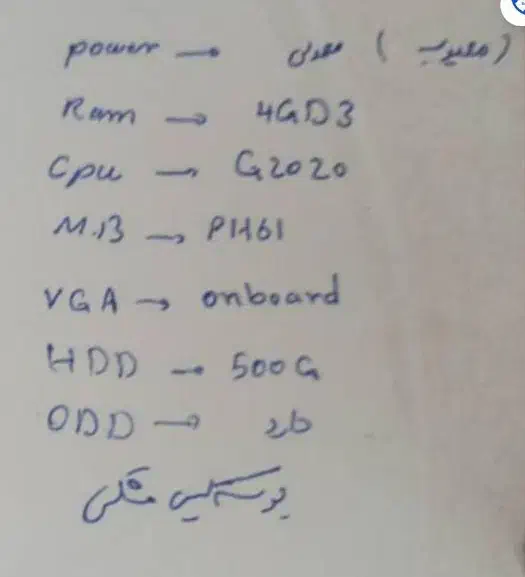 power → معمولی (معیوب)
Ram → 4GD3
Cpu → G2020
M.B → PH61
VGA → onboard
HDD → 500G
ODD →
مشکی